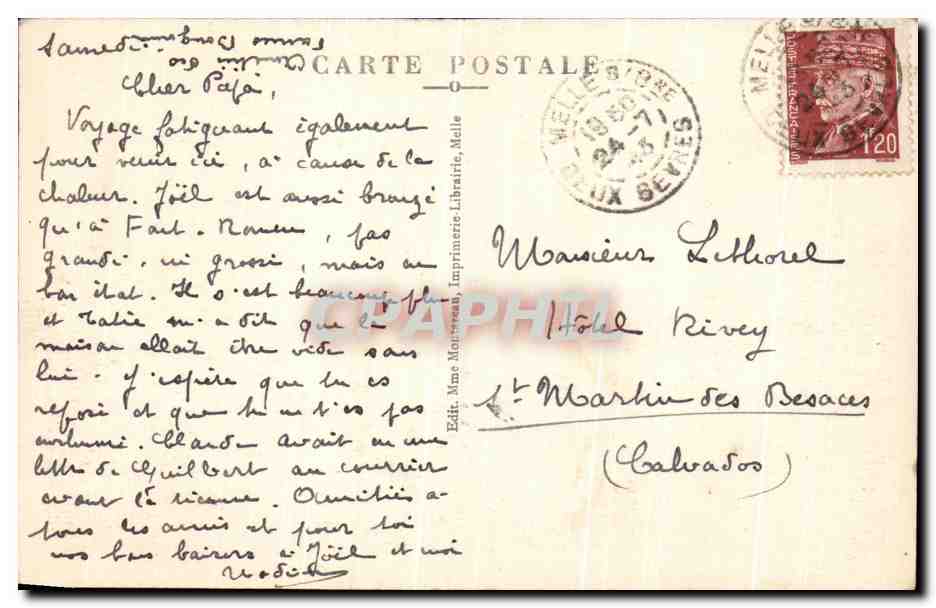 Samedi
CARTE POSTALE
Cher Papa,
Voyage fatiguant également
pour venir ici, à cause de la
chaleur. Joël est aussi bronzé
qu'à Font-Romeu, pas
grandi, ni grossi, mais en
bon état. Il s'est beaucoup plu
et Tatie m'a dit que la
maison allait être vide sans
lui. J'espère que tu es
reposé et que tu ne t'es pas
enrhumé. Claude avait eu une
lettre de Guilbert au courrier
avant la sienne. Amitiés à
tous les amis et pour toi
nos bons baisers à Joël et moi
Nadia
Edit. Mme Montereau, Imprimerie-Librairie, Melle
MELLE S/Bne
18 50
24 -7
43
DEUX SEVRES
MELLE S/Bne
24
DEUX SEVRES
1F20
Monsieur Lethorel
Hôtel Rivey
St Martin des Besaces
(Calvados)
CPAPHIL